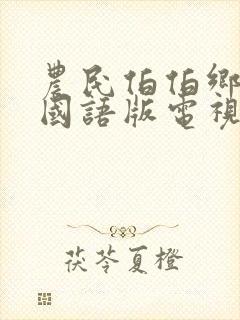 農民伯伯鄉
國語版電視
茯苓夏橙